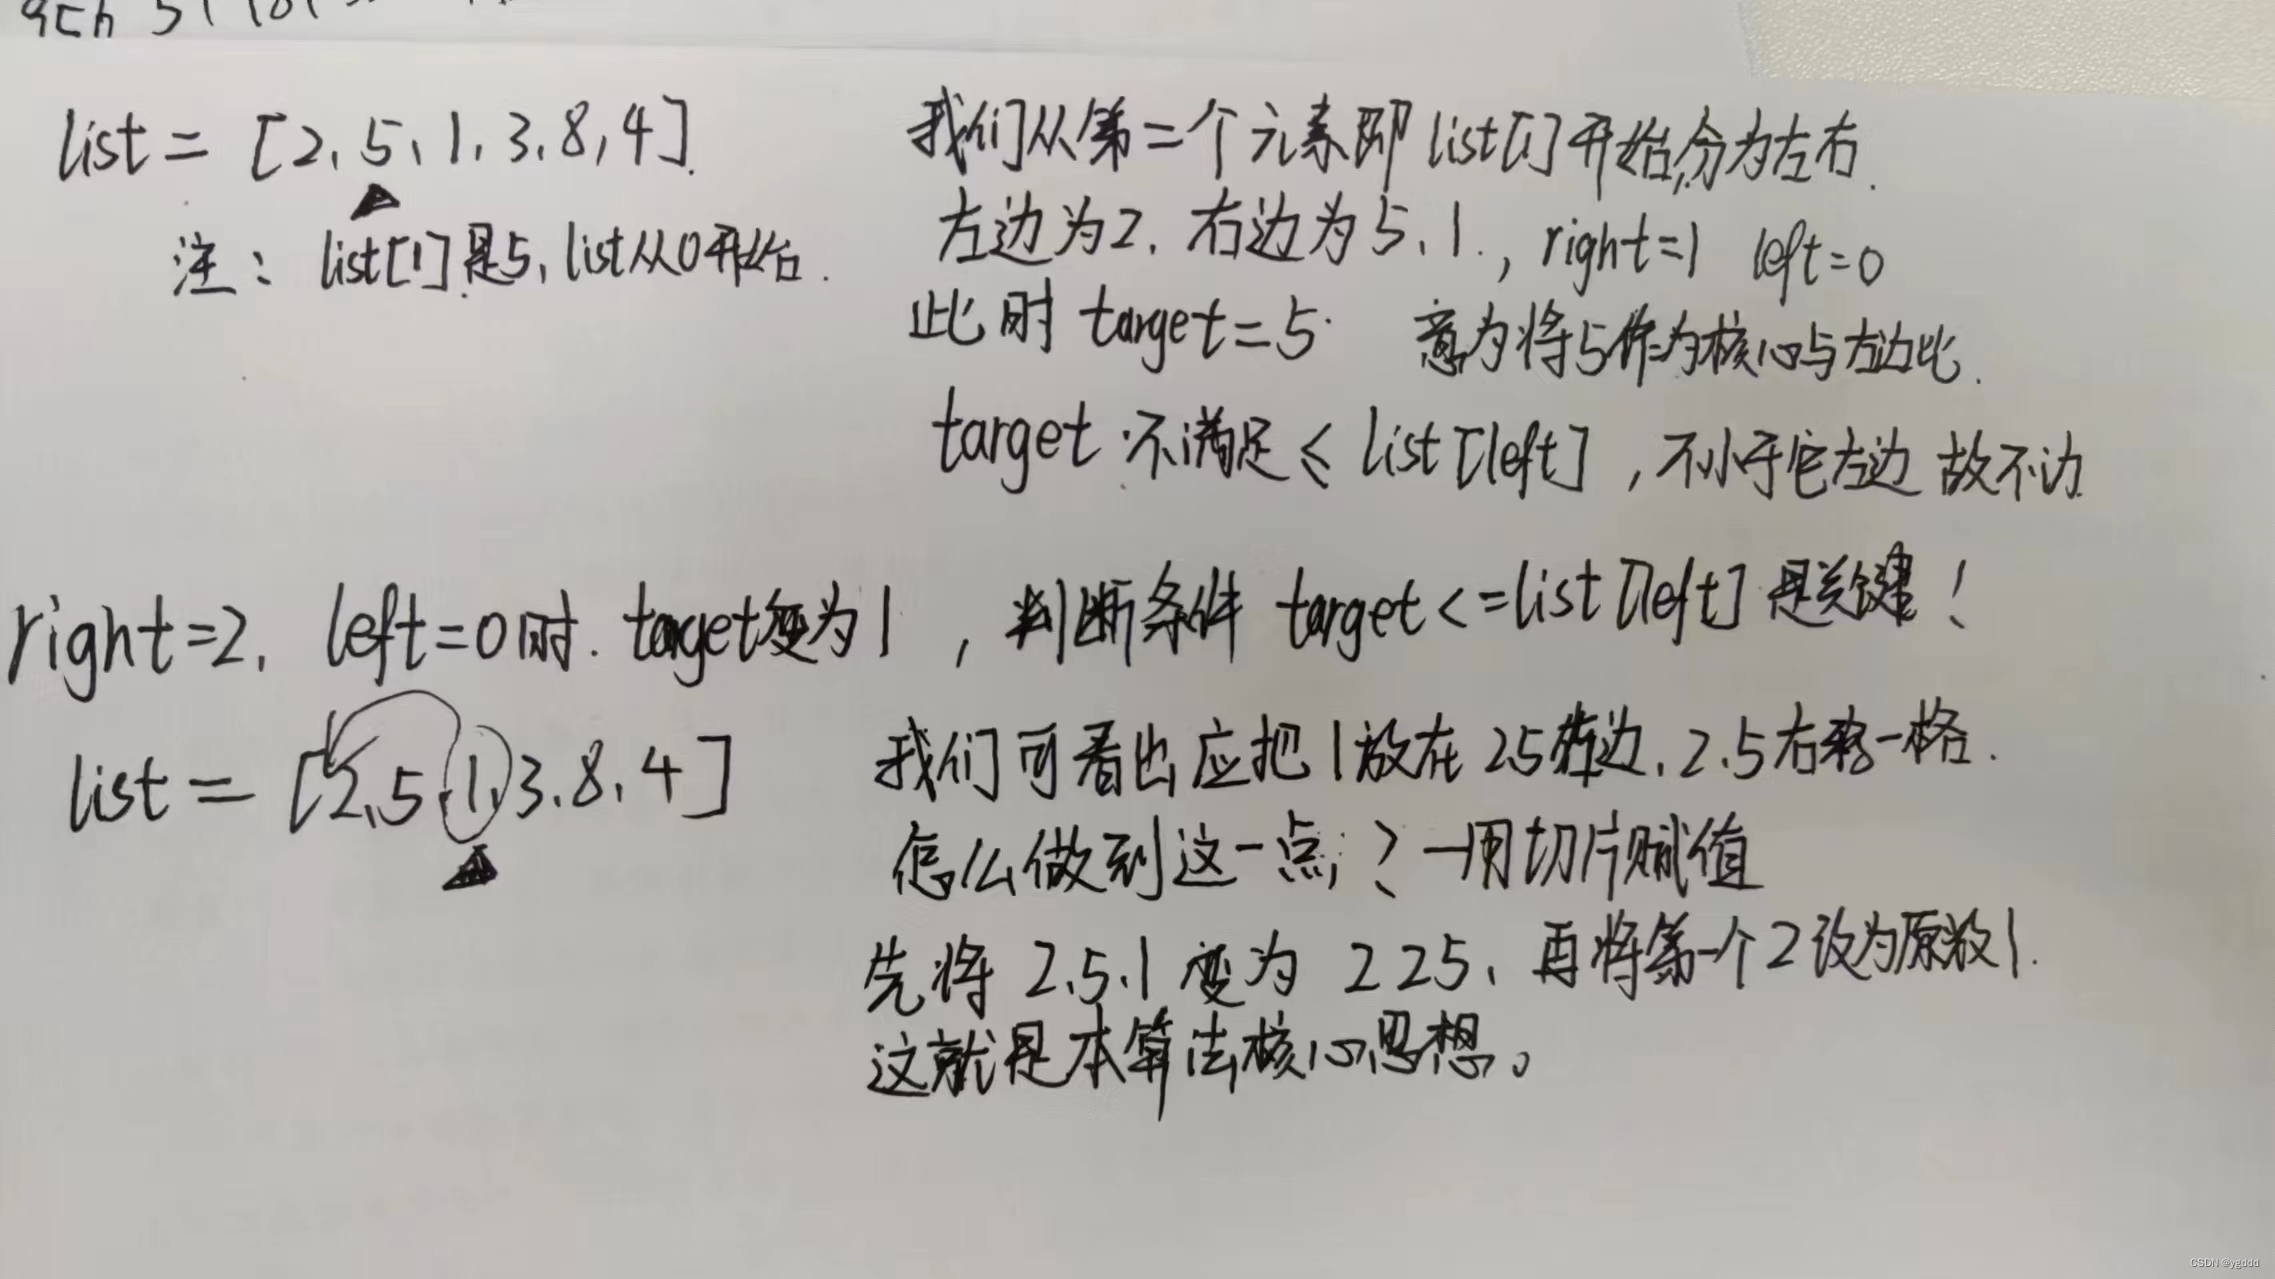 list = [2、5、1、3、8，4].
注：list[1]是5，list从0开始.
我们从第二个元素即list[1]开始，分为左右.
左边为2. 右边为5、1.，right=1 left=0
此时target=5. 意为将5作为核心与左边比.
target不满足≤ list[left]，不小于它左边 故不动
right=2. left=0时. target变为1，判断条件 target<=list[left]是关键！
list = [2、5、1、3、8、4]
我们可看出应把1放在25左边. 2.5右移一格.
怎么做到这一点？—用切片赋值
先将 2.5.1 变为 225、再将第一个2改为原数1.
这就是本算法核心思想。
CSDN @ygddd